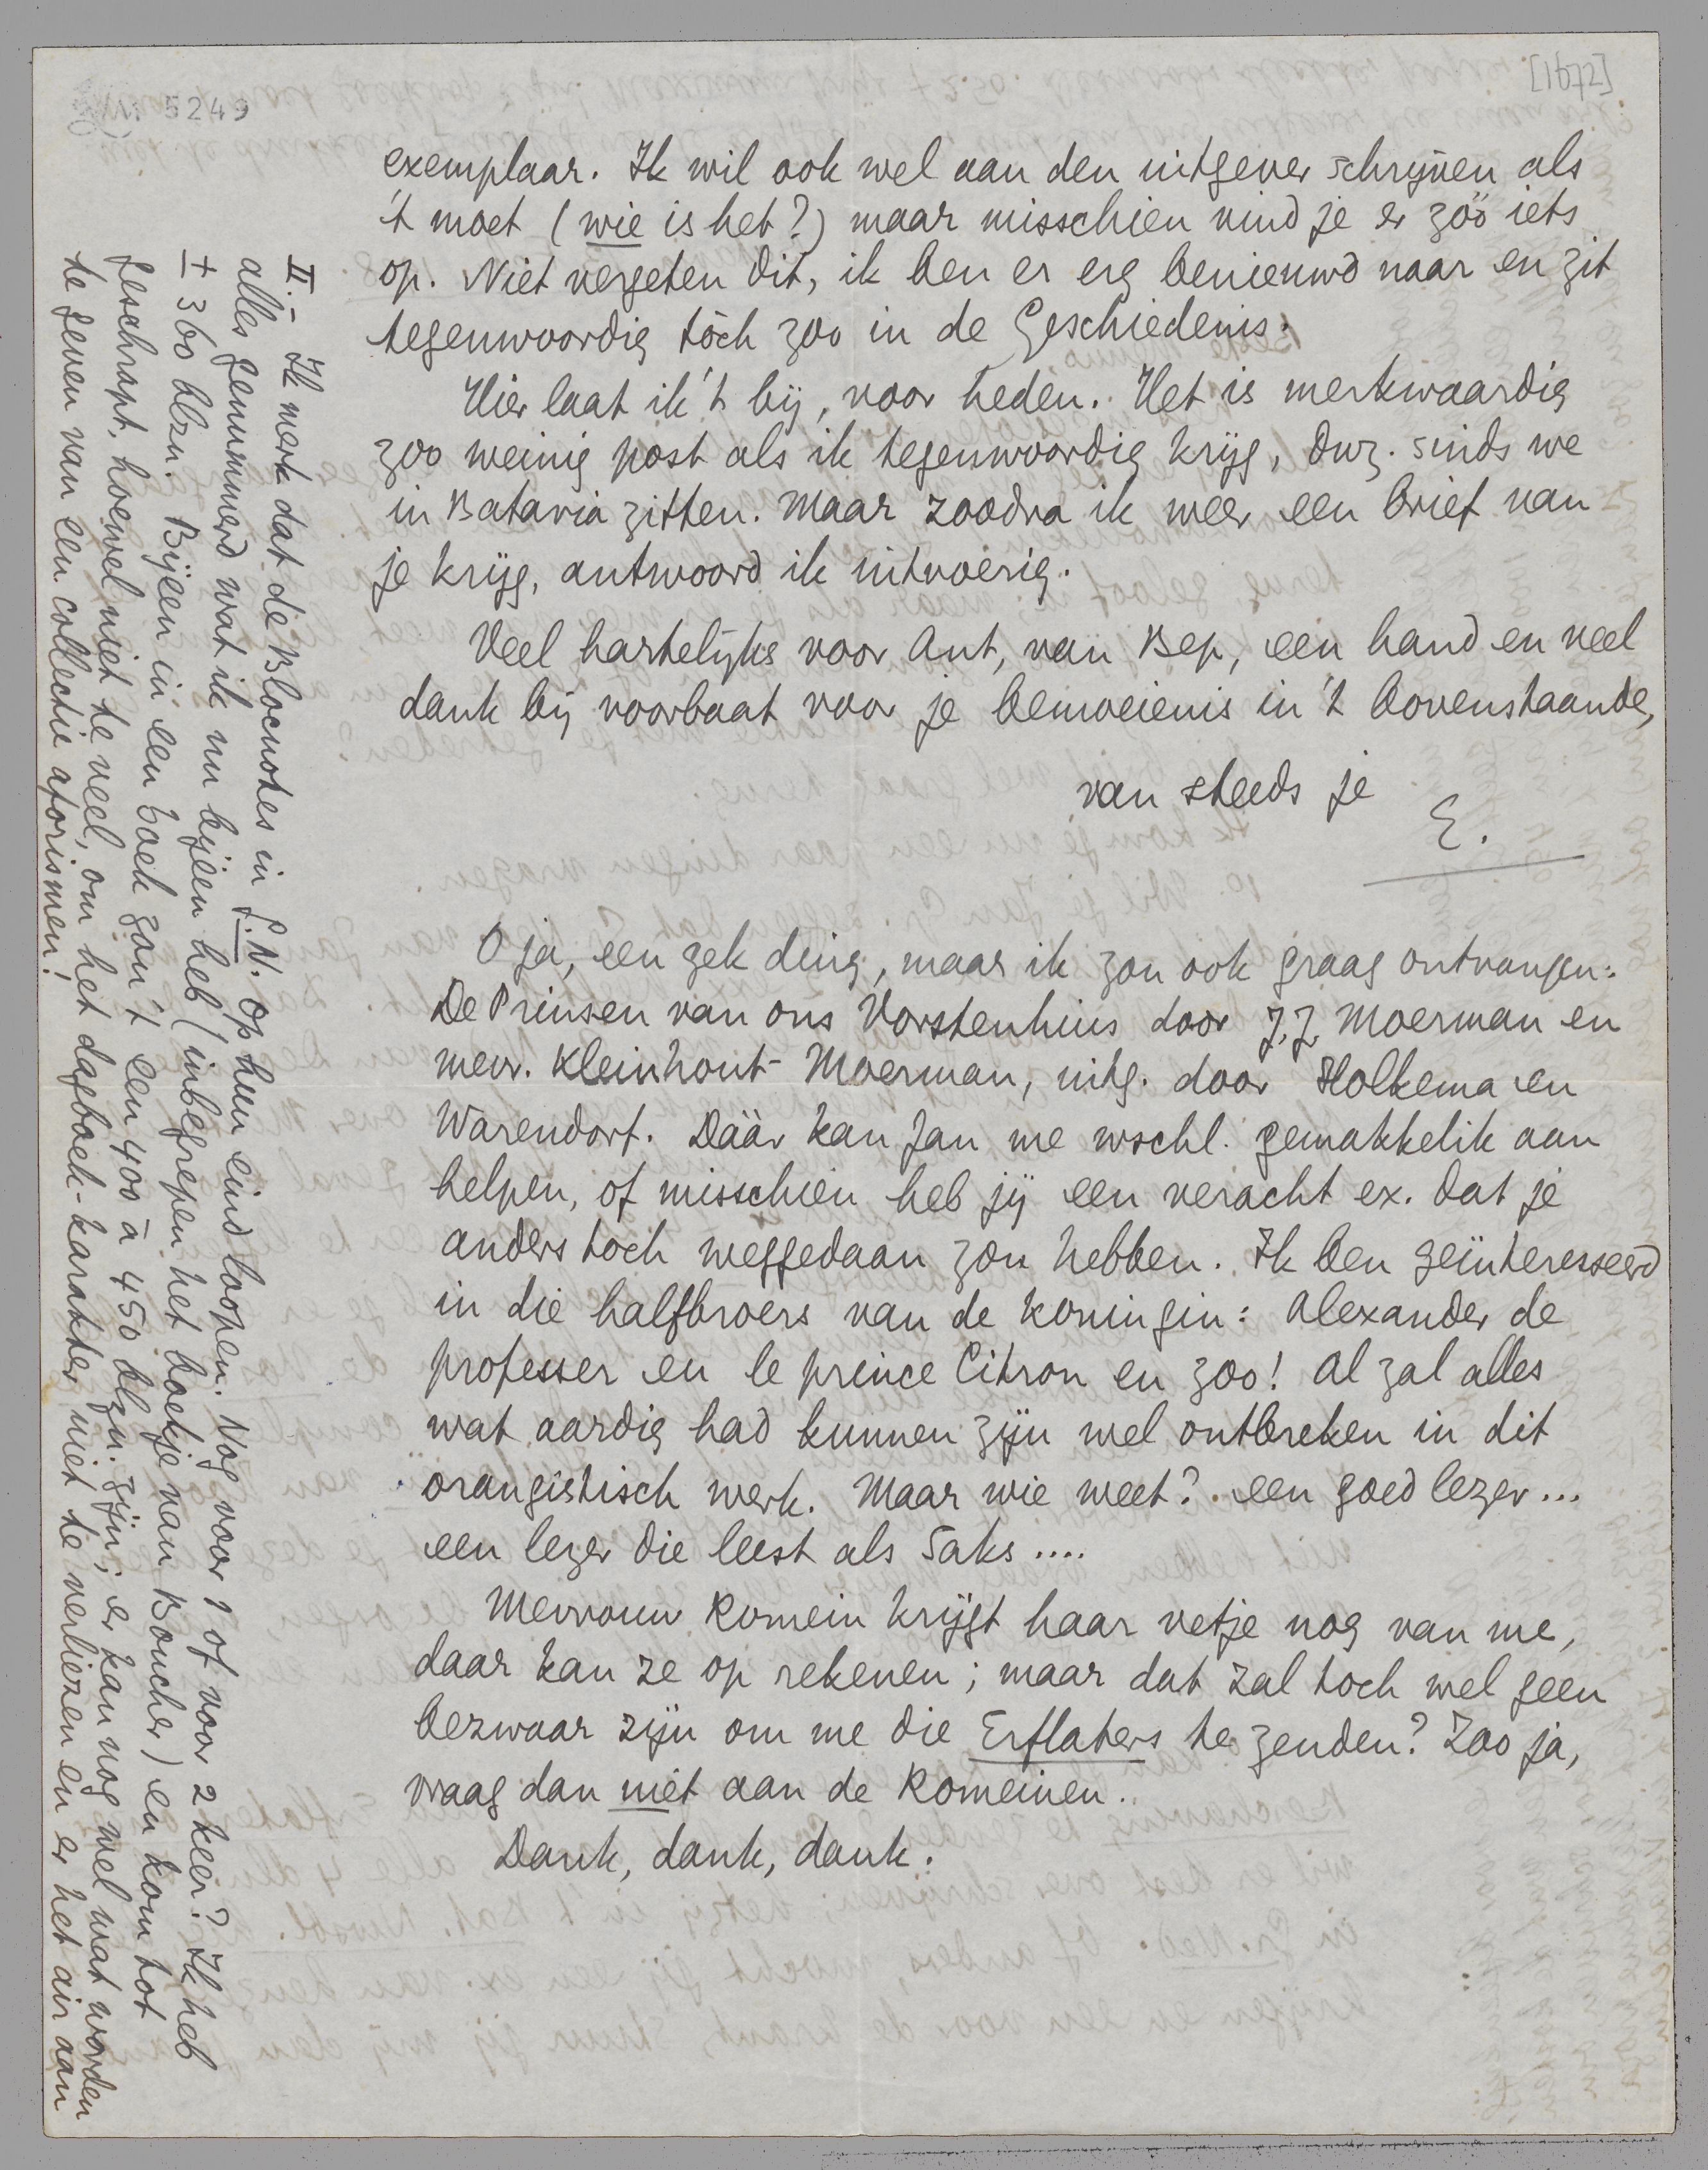 [1672]
5249
exemplaar. Ik wil ook wel aan den uitgever schrijven als
't moet (wie is het?) maar misschien vind je er zóó iets
op. Niet vergeten dit, ik ben er erg benieuwd naar en zit
tegenwoordig tòch zoo in de Geschiedenis.
Hier laat ik 't bij, voor heden. Het is merkwaardig
zoo weinig post als ik tegenwoordig krijg, dwz. sinds we
in Batavia zitten. Maar zoodra ik weer een brief van
je krijg, antwoord ik uitvoerig.
Veel hartelijks voor Ant, van Bep, een hand en veel
dank bij voorbaat voor je bemoeienis in 't bovenstaande,
van steeds je
E.
O ja, een gek ding, maar ik zou ook graag ontvangen:
De Prinsen van ons Vorstenhuis door J.J. Moerman en
mevr. Kleinhout-Moerman, uitg. door Holkema en
Warendorf. Dáár kan Jan me wschl. gemakkelik aan
helpen, of misschien heb jij een veracht ex. dat je
anders toch weggedaan zou hebben. Ik ben geïnteresseerd
in die halfbroers van de koningin: Alexander de
professer en le prince Citron en zoo! Al zal alles
wat aardig had kunnen zijn wel ontbreken in dit
orangistisch werk. Maar wie weet? een goed lezer...
een lezer die leest als Saks ....
Mevrouw Romein krijgt haar vetje nog van me,
daar kan ze op rekenen; maar dat zal toch wel geen
bezwaar zijn om me die Erflaters te zenden? Zoo ja,
vraag dan niet aan de Romeinen.
Dank, dank, dank.
II.- Ik merk dat de Blocnotes in G.N. op hun eind loopen. Nog voor 1 of voor 2 keer? Ik heb
alles genummerd wat ik nu bijeen heb (inbegrepen het boekje van Boucher) en kom tot
± 360 blzn. Bijeen in een boek zou 't een 400 à 450 blzn. zijn; er kan nog wel wat worden
geschrapt, hoewel niet te veel, om het dagboek-karakter niet te verliezen en er het air aan
te geven van een collectie aforismen!